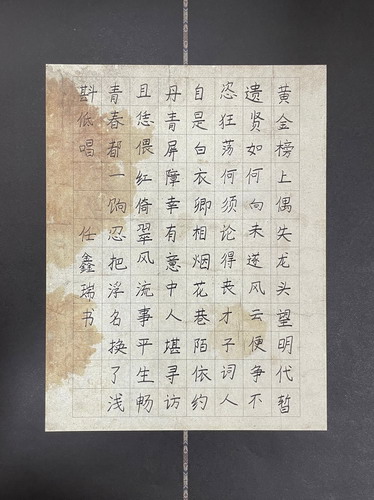 黄金榜上偶失龙头望明代暂
遗贤如何向未遂风云便争不
恣狂荡何须论得丧才子词人
自是白衣卿相烟花巷陌依约
丹青屏障幸有意中人堪寻访
且恁偎红倚翠风流事平生畅
青春都一饷忍把浮名换了浅
斟低唱 任鑫瑞书